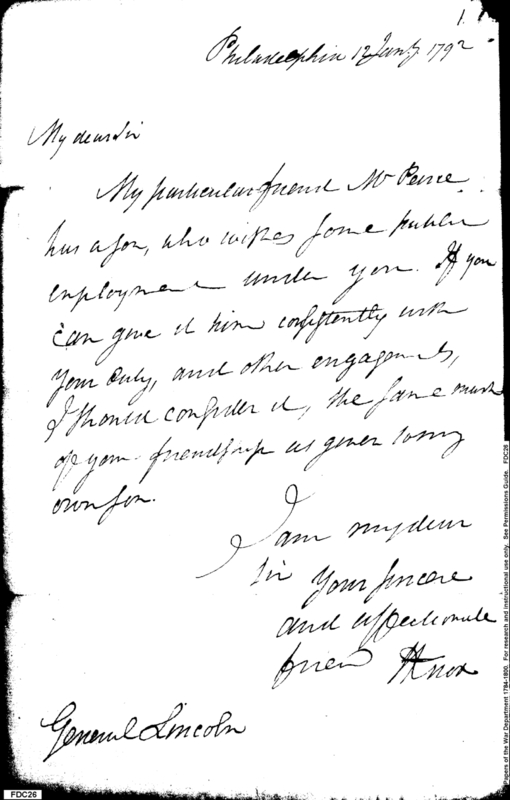 1.
Philadelphia 12 Jany 1792
My dear Sir
My particular friend Mr Peirce
has a son, who wishes some public
employment under you. If you
can give it him consistently with
your duty, and other engagements,
I should consider it, the same mark
of your friendship as given to my
own son.
I am my dear
Sir your sincere
and affectionate
friend HKnox
General Lincoln
FDC26
Papers of the War Department 1784-1800. For research and instructional use only. See Permissions Guide. FDC26